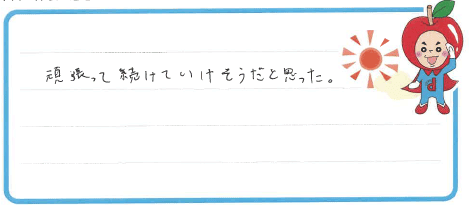 頑張って続けていけそうだと思った。
d